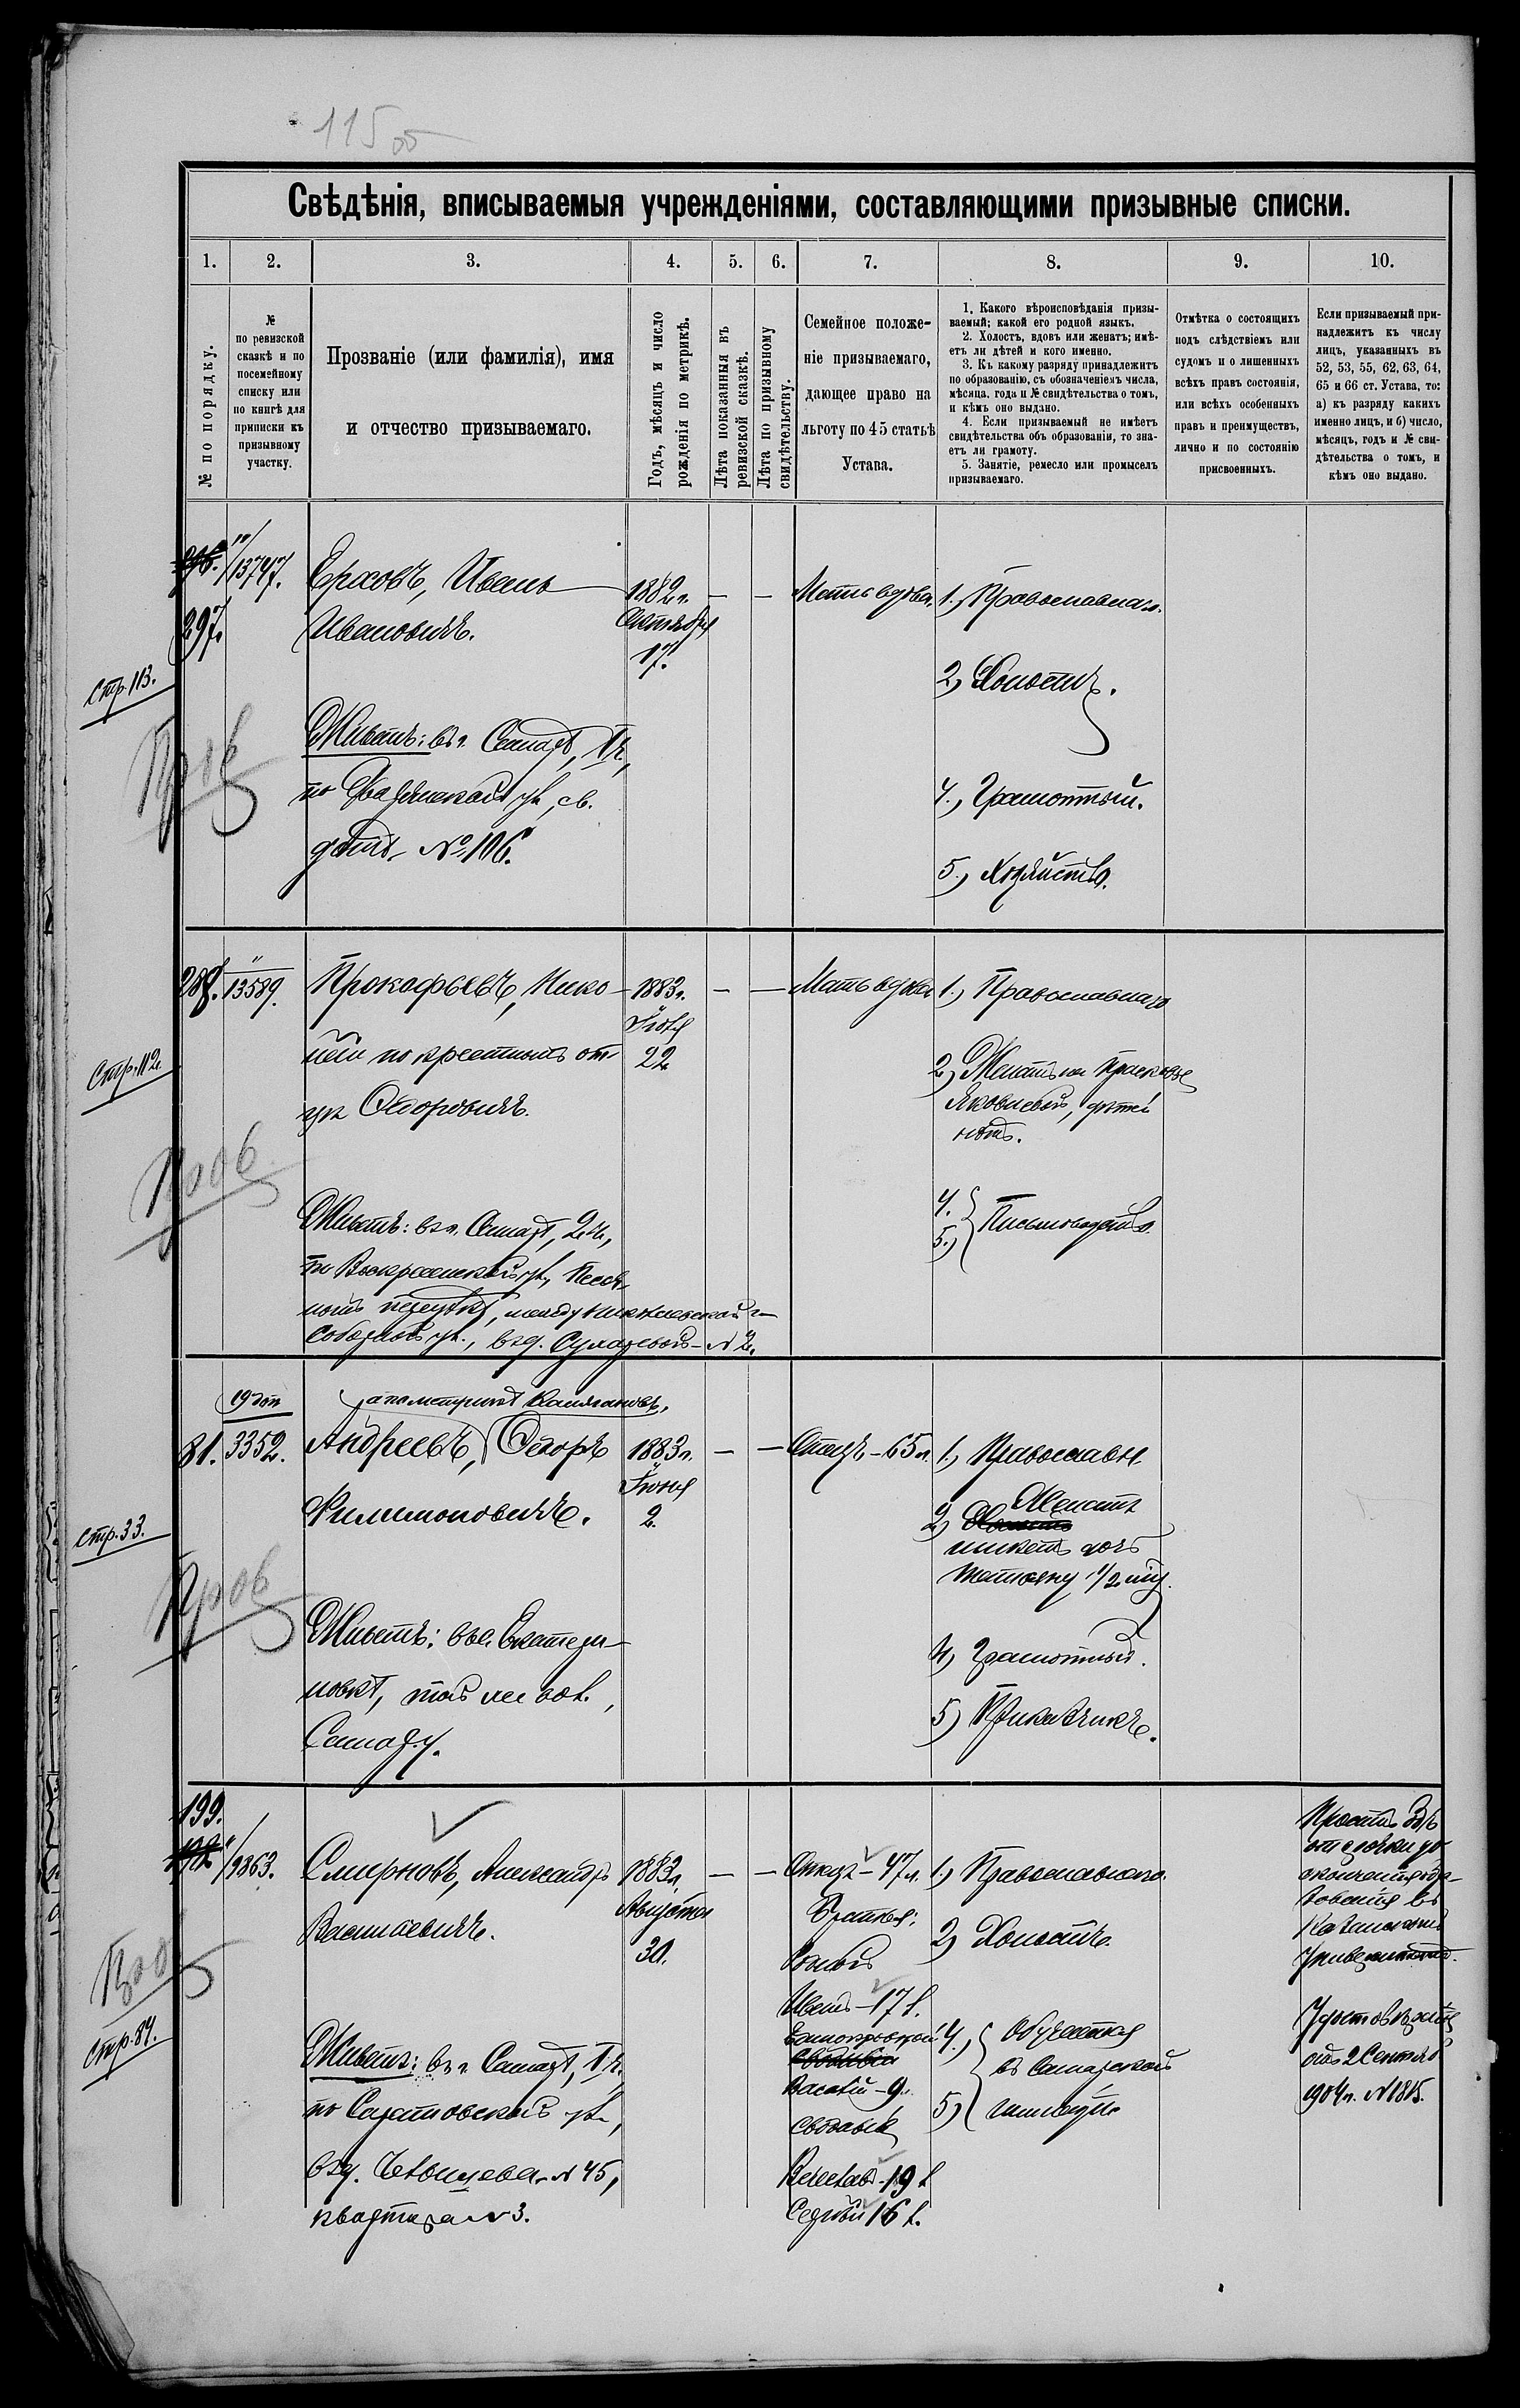 115 об
Свѣдѣнія, вписываемыя учрежденіями, составляющими призывные списки.
1. 2. 3. 4. 5. 6. 7. 8. 9. 10.
№ по порядку.
№
по ревизской
сказкѣ и по
посемейному
списку или
по книгѣ для
приписки къ
призывному
участку.
Прозваніе (или фамилія), имя
и отчество призываемаго.
Годъ, мѣсяцъ и число
рожденія по метрикѣ.
Лѣта показанныя въ
ревизской сказкѣ.
Лѣта по призывному
свидѣтельству.
Семейное положе-
ніе призываемаго,
дающее право на
льготу по 45 статьѣ
Устава.
1. Какого вѣроисповѣданія призы-
ваемый; какой его родной языкъ.
2. Холостъ, вдовъ или женатъ; имѣ-
етъ ли дѣтей и кого именно.
3. Къ какому разряду принадлежитъ
по образованію, съ обозначеніемъ числа,
мѣсяца, года и № свидѣтельства о томъ,
и кѣмъ оно выдано.
4. Если призываемый не имѣетъ
свидѣтельства объ образованіи, то зна-
етъ ли грамоту.
5. Занятіе, ремесло или промыселъ
призываемаго.
Отмѣтка о состоящихъ
подъ слѣдствіемъ или
судомъ и о лишенныхъ
всѣхъ правъ состоянія,
или всѣхъ особенныхъ
правъ и преимуществъ,
лично и по состоянію
присвоенныхъ.
Если призываемый при-
надлежитъ къ числу
лицъ, указанныхъ въ
52, 53, 55, 62, 63, 64,
65 и 66 ст. Устава, то:
а) къ разряду какихъ
именно лицъ, и б) число,
мѣсяцъ, годъ и № сви-
дѣтельства о томъ, и
кѣмъ оно выдано.
296. 13747.
297.
Стр. 113.
Пров
Ершовъ, Иванъ
Ивановичъ.
Живетъ: въ г. Самарѣ, 1 ч,
по ул., въ
домѣ № 106.
1882 г.
Октября
17.
— —
Мать вдова.
1.) Православнаго.
2.) Холостъ.
4.) Грамотный.
5.) Хозяйство.
288. 13589.
Стр. 112.
Пров
Прокофьевъ, Нико-
лай по крестному от-
цу Ѳедоровичъ.
Живетъ: въ г. Самарѣ, 2 ч,
по Воскресенской ул,
переулкѣ, между и
Соборной ул., въ д. № 2.
1883 г.
Іюня
22
— —
Мать вдова
1.) Православнаго
2.) Женатъ на Прасковьѣ
Яковлевой, дѣтей
нѣтъ.
4.
5.) Письмоводство.
19 доп
81. 3352.
Стр. 33.
Пров
а по метрикѣ
Андреевъ, Ѳедоръ
Филимоновичъ.
Живетъ: въ с. Екатери-
новкѣ, той же вол.,
Самар. у.
1883 г.
Іюня
2.
— —
Отецъ – 65 л.
1.) Православн.
2) Женатъ
имѣетъ дочь
Татьяну 1/2 г.
4) Грамотный.
5) Приказчикъ.
199.
9863.
Пров
Стр. 84.
Смирновъ, Александръ
Васильевичъ.
Живетъ: въ г. Самарѣ, 1 ч.
по Саратовской ул.,
въ д. № 45,
квартира № 3.
1883 г.
Августа
30.
— —
Отецъ – 47 л.
Братья:
Родной
Иванъ – 17 л.
Василій – 9 л.
сводные
Вячеславъ – 19 л
Сергѣй 16 л.
1) Православнаго.
2) Холостъ.
4.) Обучается
въ Самарской
5)
Проситъ
отсрочки до
окончанія обра-
зованія въ
Казанскомъ
Университетѣ.
Удостовѣреніе
отъ 2 Сентяб
1904 г. № 1815.